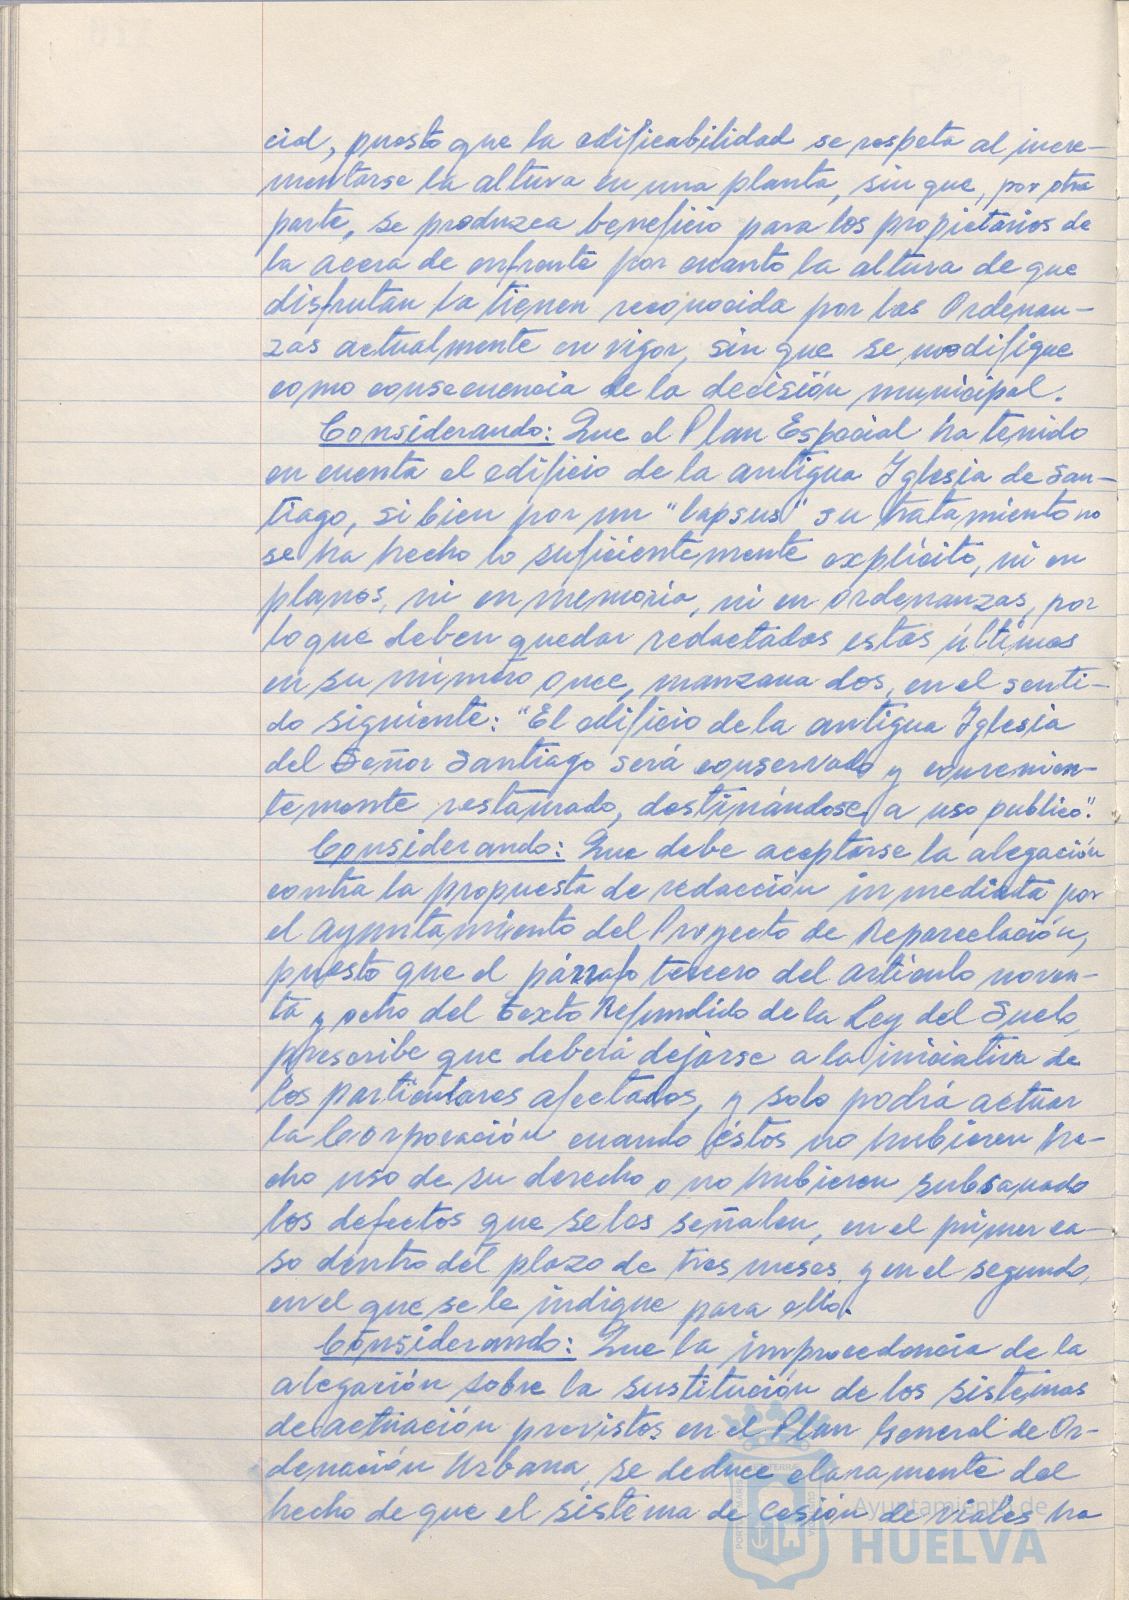 cial, puesto que la edificabilidad se respeta al incre-
mentarse la altura en una planta, sin que, por otra
parte, se produzca beneficio para los propietarios de
la acera de enfrente por cuanto la altura de que
disfrutan la tienen reconocida por las Ordenan-
zas actualmente en vigor, sin que se modifique
como consecuencia de la decisión municipal.
Considerando: Que el Plan Especial ha tenido
en cuenta el edificio de la antigua Iglesia de San-
tiago, si bien por un "lapsus" su tratamiento no
se ha hecho lo suficientemente explícito, ni en
planos, ni en memoria, ni en ordenanzas, por
lo que deben quedar redactadas estas últimas
en su número once, manzana dos, en el senti-
do siguiente: "El edificio de la antigua Iglesia
del Señor Santiago será conservado y convenien-
temente restaurado, destinándose a uso publico".
Considerando: Que debe aceptarse la alegación
contra la propuesta de redacción inmediata por
el Ayuntamiento del Proyecto de Reparcelación,
puesto que el párrafo tercero del artículo noven-
ta y ocho del Texto Refundido de la Ley del Suelo,
prescribe que deberá dejarse a la iniciativa de
los particulares afectados, y solo podrá actuar
la Corporación cuando éstos no hubieren he-
cho uso de su derecho o no hubieren subsanado
los defectos que se les señalen, en el primer ca-
so dentro del plazo de tres meses y en el segundo,
en el que se le indique para ello.
Considerando: Que la improcedencia de la
alegación sobre la sustitución de los sistemas
de actuación previstos en el Plan General de Or-
denación Urbana, se deduce claramente del
hecho de que el sistema de Cesión de Viales ha
Ayuntamiento de
HUELVA